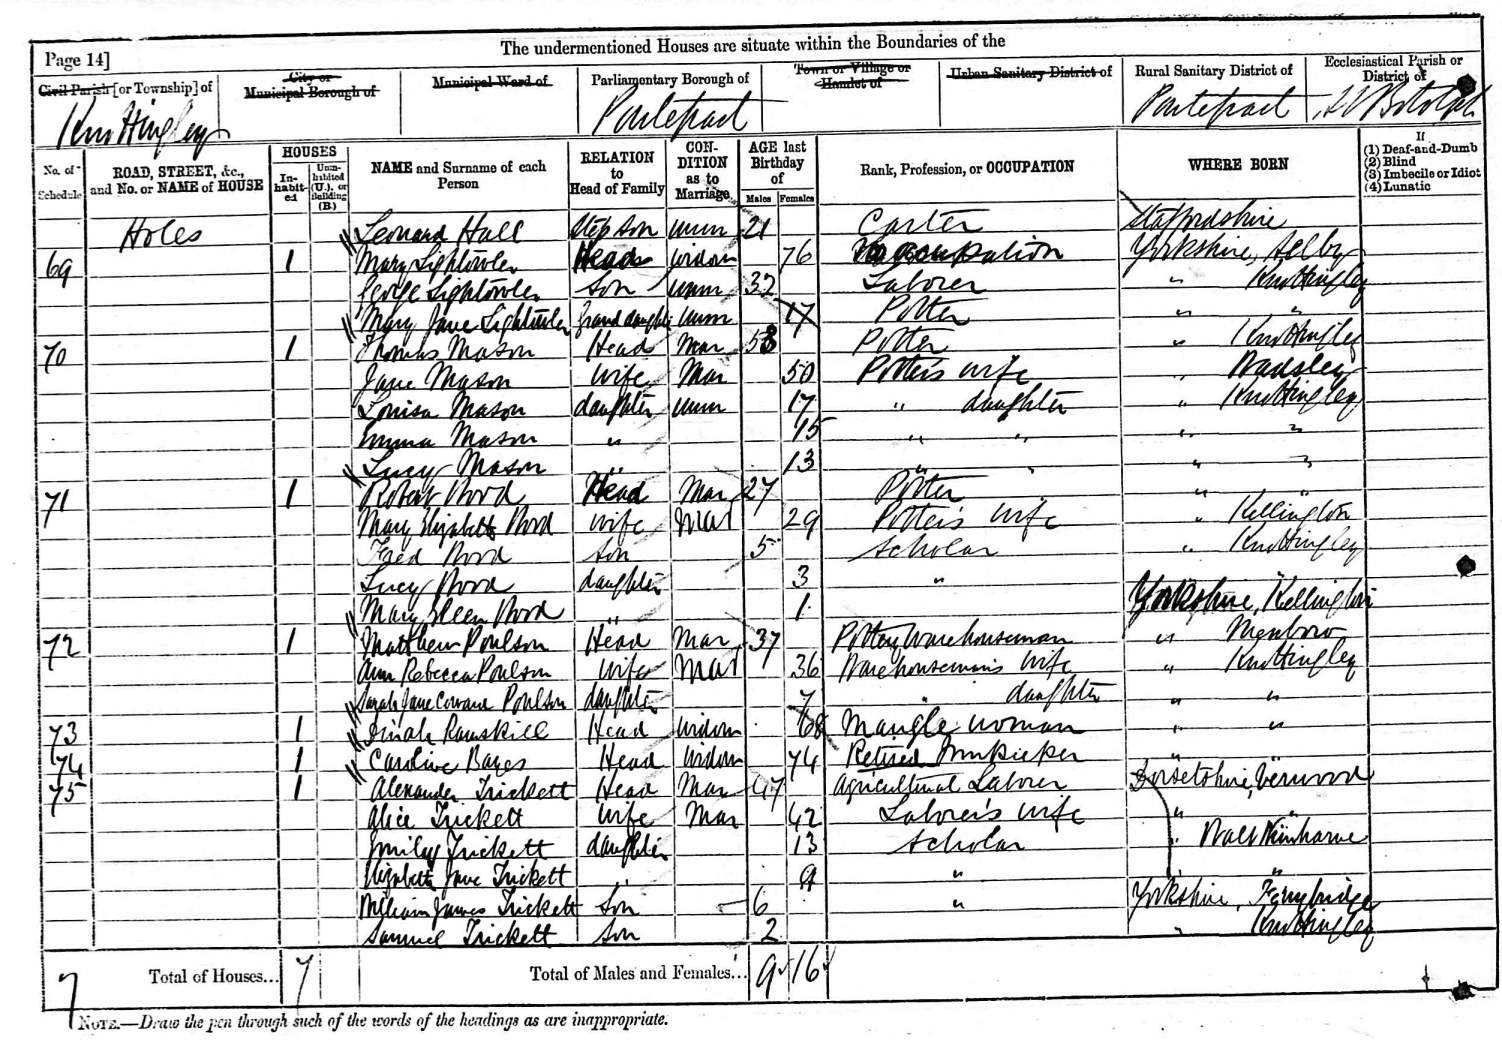 The undermentioned Houses are situate within the Boundaries of the
Page 14]
Civil Parish [or Township] of
City or Municipal Borough of
Municipal Ward of
Parliamentary Borough of
Town or Village or Hamlet of
Urban Sanitary District of
Rural Sanitary District of
Ecclesiastical Parish or District of
Knottingley Pontefract Pontefract St Botolph
No. of Schedule
ROAD, STREET, &c., and No. or NAME of HOUSE
HOUSES
In-habit-ed
Unin-habited (U.), or Building (B.)
NAME and Surname of each Person
RELATION to Head of Family
CON-DITION as to Marriage
AGE last Birthday of
Males Females
Rank, Profession, or OCCUPATION
WHERE BORN
If
(1) Deaf-and-Dumb
(2) Blind
(3) Imbecile or Idiot
(4) Lunatic
Holes Leonard Hall Step son unm 21 Carter Staffordshire
69 1 Mary Lightowler Head widow 76 No occupation Yorkshire, Selby
George Lightowler son unm Laborer " Knottingley
Mary Jane Lightowler Grand daughter unm 17 Potter " "
70 1 Thomas Mason Head Mar 58 Potter " Knottingley
Jane Mason wife Mar 50 Potter's wife " Wadsley
Louisa Mason daughter unm 17 " daughter " Knottingley
Emma Mason " 15 " " " "
Lucy Mason " 13 " " " "
71 1 Robert Wood Head Mar 27 Potter " "
Mary Elizabeth Wood wife Mar 29 Potter's wife " Kellington
Fred Wood son 5 Scholar " Knottingley
Lucy Wood daughter 3 " "
Mary Ellen Wood " 1 Yorkshire, Kellington
72 1 Matthew Poulson Head Mar 37 Pottery Warehouseman "
Ann Rebecca Poulson wife Mar 36 Warehouseman's wife " Knottingley
Sarah Jane Coward Poulson daughter 7 " daughter " "
73 1 Dinah Ramskill Head widow 68 Mangle woman " "
74 1 Caroline Head widow 74 Retired Innkeeper " "
75 1 Alexander Trickett Head Mar 47 Agricultural Laborer Dorsetshire, Verwood
Alice Trickett wife Mar 42 Laborer's wife " "
Emily Trickett daughter 13 Scholar "
Elizabeth Jane Trickett " 9 " "
William James Trickett son 6 " Yorkshire, Ferrybridge
Samuel Trickett son 2 " Knottingley
7 Total of Houses... 7 Total of Males and Females... 9 16
NOTE.—Draw the pen through such of the words of the headings as are inappropriate.